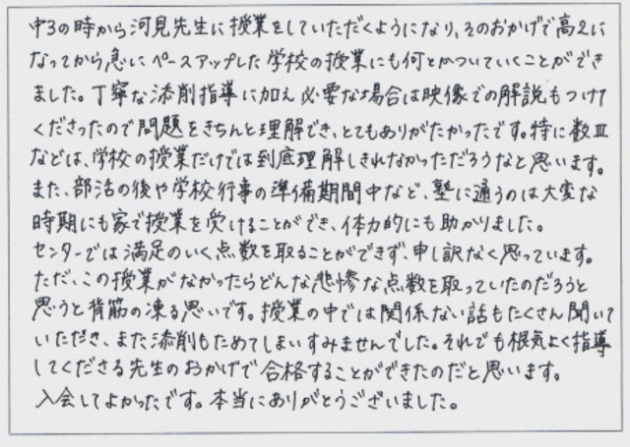 中3の時から河見先生に授業をしていただくようになり、そのおかげで高2に
なってから急にペースアップした学校の授業にも何とかついていくことができ
ました。丁寧な添削指導に加え必要な場合は映像での解説もつけて
くださったので問題をきちんと理解でき、とてもありがたかったです。特に数Ⅲ
などは、学校の授業だけでは到底理解しきれなかっただろうなと思います。
また、部活の後や学校行事の準備期間中など、塾に通うのは大変な
時期にも家で授業を受けることができ、体力的にも助かりました。
センターでは満足のいく点数を取ることができず、申し訳なく思っています。
ただ、この授業がなかったらどんな悲惨な点数を取っていたのだろうと
思うと背筋の凍る思いです。授業の中では関係ない話もたくさん聞いて
いただき、また添削もためてしまいすみませんでした。それでも根気よく指導
してくださる先生のおかげで合格することができたのだと思います。
入会してよかったです。本当にありがとうございました。